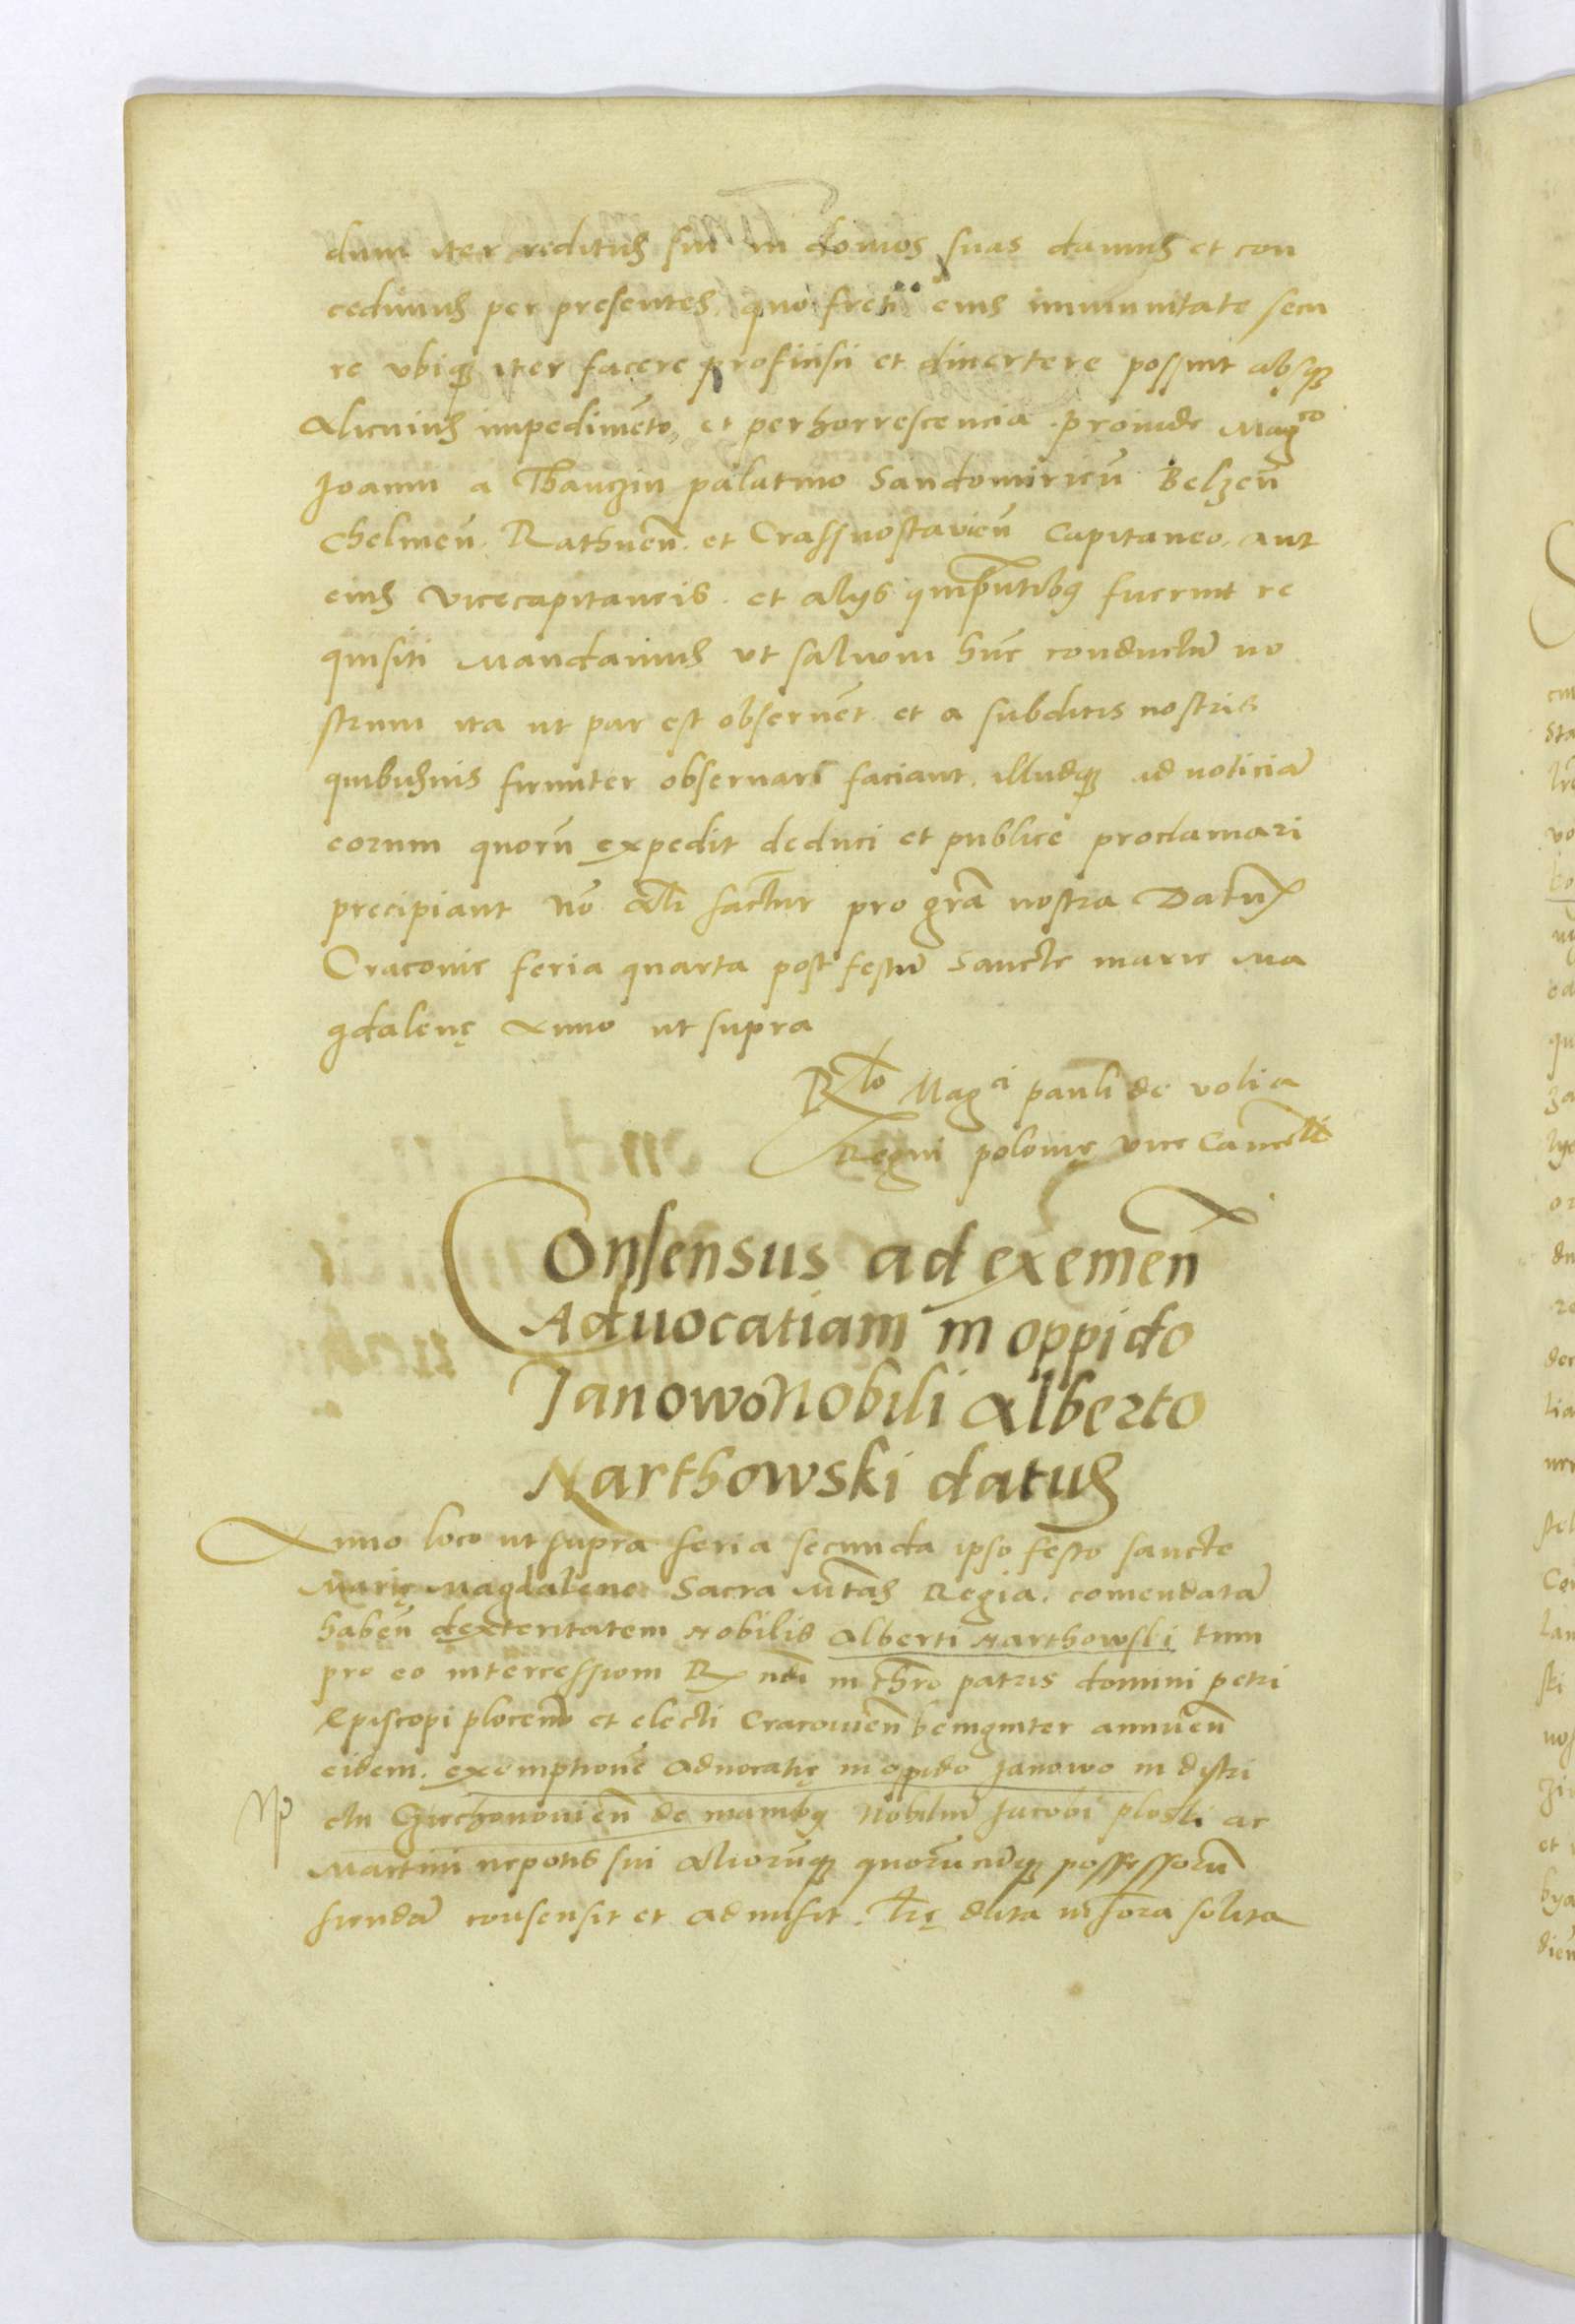 dum iter reditus sui in domos suas damus et con
cedimus per presentes quo freti eius immunitate secu
re vbiqȝ iter facere proficisci et diuertere possint absqȝ
Alicuius impedimẽto et perhorrescencia. proinde Magco
Joanni a Thanczin palatino Sandomirieñ Belzeñ
Chelmeñ. Rathneñ. et Crassnostavieñ Capitaneo. aut
eius vicecapitaneis. et alijs quipñtibȝ fuerint re
quisiti Mandamus vt saluum hũc conductũ no
strum ita ut par est obseruẽt et a subditis nostris
quibusuis firmiter obseruari faciant. illudqȝ ad noticiã
eorum quorũ expedit deduci et publice proclamari
precipiant nõ alr̃ facturi pro grã nostra Datum
Cracouie feria quarta post festũ Sancte marie Ma
gdalenę Anno ut supra
Rlo Magci pauli de volia
Regni polonię vice Cancelli
Consensus ad exemeñ
Aduocatiam in oppido
Janowo Nobili Alberto
Narthowski datus
Anno loco ut supra feria secunda ipso festo sancte
Marię Magdalene Sacra Mtas Regia. comendatã
habeñ dexteritatem Nobilis Alberti Narthowski tum
pro eo intercessiom R ndi in chro patris domini petri
Episcopi ploceñ et electi Cracovieñ benigniter annueñ
eidem. exemptionẽ aduocatię in opido Janowo in distri
ctu Cziechonouieñ de manibȝ Nobiliũ Jacobi ploski ac
Martini nepotis sui aliorũqȝ quorũcũqȝ possessorũ
fiendã consensit et admisit. Lrę data in fora solita